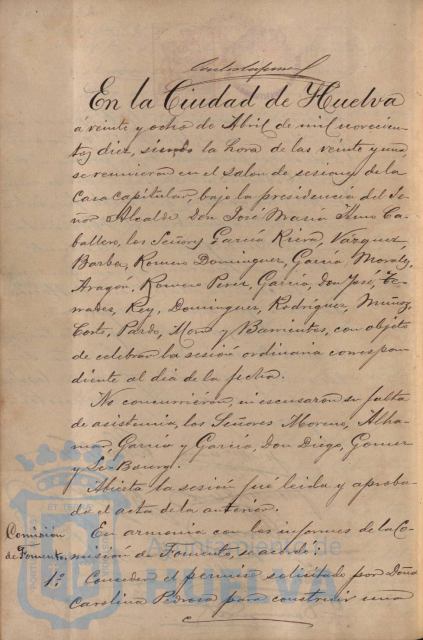 En la Ciudad de Huelva
á veinte y ocho de Abril de mil novecien-
tos diez, siendo la hora de las veinte y una,
se reunieron en el salon de sesiones de la
Casa capitular, bajo la presidencia del Se-
ñor Alcalde Don José María Ca-
ballero, los Señores García Riera, Vázquez,
Barba, Romero Dominguez, García Morales,
Aragón, Romero Perez, García, Don José, Te-
rrades, Rey, Dominguez, Rodríguez, Muñoz,
Corte, Pardo, Mora y Barrientos, con objeto
de celebrar la sesión ordinaria correspon-
diente al día de la fecha.
No concurrieron, ni escusaron su falta
de asistencia, los Señores Moreno, Alha-
ma, García y García, Don Diego, Gomez
y Le-Bourg.
Abierta la sesión fué leida y aproba-
da el acta de la anterior.
Comisión
de Fomento.
En armonía con los informes de la Co-
misión de Fomento, se acordó:
1º Conceder el permiso solicitado por Doña
Carolina Pedrosa para construir una